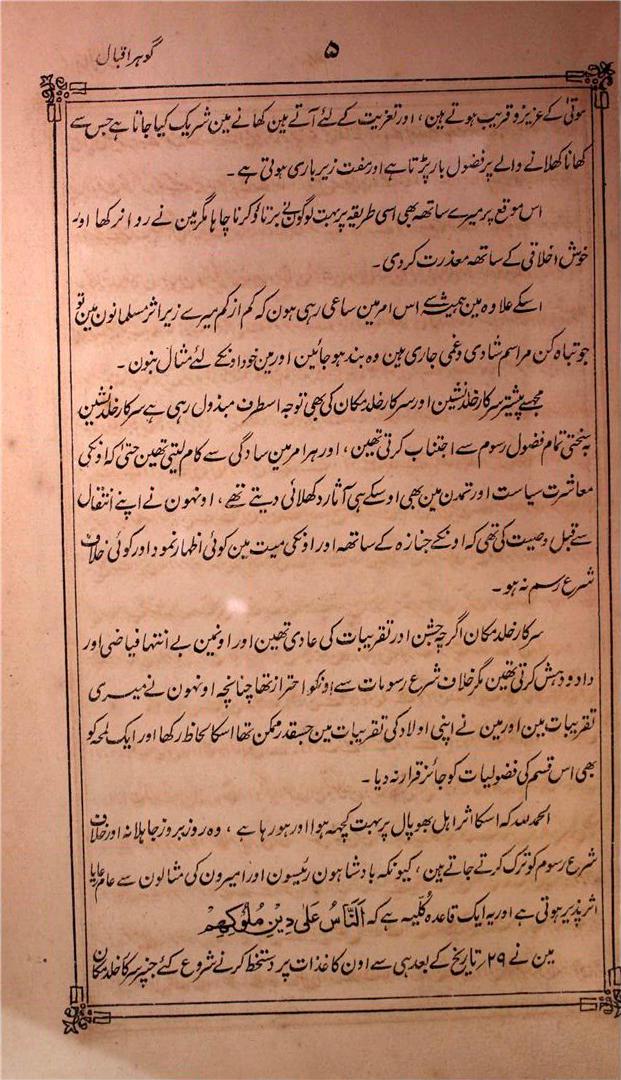 ۵ گوہر اقبال
موتیٰ کے عزیز و قریب ہوتے ہین، اور تعزیت کے لئے آتے ہین کھانے مین شریک کیا جاتا ہے جس سے
کھانا کھلانے والے پر فضول بار پڑتا ہے اور مفت زیر باری ہوتی ہے۔
اس موقع پر میرے ساتھ بھی اسی طریقہ پر بہت لوگون نے برتاؤ کرنا چاہا مگر مین نے روا نرکھا اور
خوش اخلاقی کے ساتھ معذرت کردی۔
اسکے علاوہ مین ہمیشہ سے اس امر مین ساعی رہی ہون کہ کم از کم میرے زیر اثر مسلمانون مین تو
جو تباہ کن مراسم شادی و غمی جاری ہین وہ بند ہوجائین اور مین خود اونکے لئے مثال بنون۔
مجھسے پیشتر سرکار خلد نشین اور سرکار خلد مکان کی بھی توجہ اسطرف مبذول رہی ہے سرکار خلد نشین
بہ سختی تمام فضول رسوم سے اجتناب کرتی تھین، اور ہر امر مین سادگی سے کام لیتی تھین حتیٰ کہ اونکی
معاشرت سیاست اور تمدن مین بھی اوسکے ہی آثار دکھلائی دیتے تھے، اونہون نے اپنے انتقال
سے قبل وصیت کی تھی کہ اونکے جنازہ کے ساتھ اور اونکی میت مین کوئی اظہار نمود اور کوئی خلاف
شرع رسم نہ ہو۔
سرکار خلد مکان اگرچہ جشن اور تقریبات کی عادی تھین اور اونمین بے انتہا فیاضی اور
داد و دہش کرتی تھین مگر خلاف شرع رسومات سے اونکو احتراز تھا چنانچہ اونہون نے میری
تقریبات مین اور مین نے اپنی اولاد کی تقریبات مین جسقدر ممکن تھا اسکا لحاظ رکھا اور ایک لمحہ کو
بھی اس قسم کی فضولیات کو جائز قرار نہ دیا۔
الحمد للہ کہ اسکا اثر اہل بھوپال پر بہت کچھہ ہوا اور ہو رہا ہے، وہ روز بروز جاہلانہ اور خلاف
شرع رسوم کو ترک کرتے جاتے ہین، کیونکہ بادشاہون رئیسون اور امیرون کی مثالون سے عام رعایا
اثر پذیر ہوتی ہے اور یہ ایک قاعدہ کُلّیہ ہے کہ اَلنَّاسُ عَلیٰ دِیْنِ مُلُوْکِھِمْ
مین نے ۲۹؍ تاریخ کے بعد ہی سے اون کاغذات پر دستخط کرنے شروع کئے جنپر سرکار خلد مکان